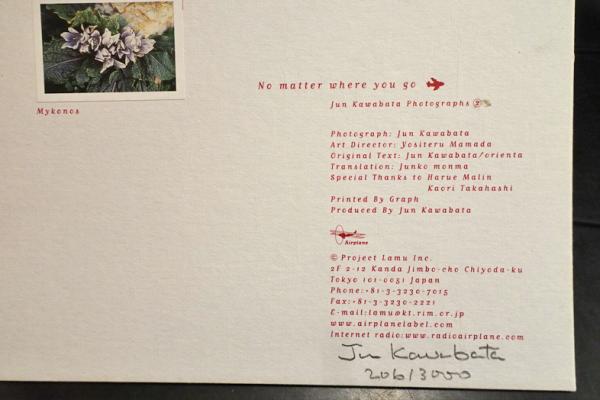 Mykonos
No matter where you go
Jun Kawabata Photographs ②
Photograph: Jun Kawabata
Art Director: Yositeru Mamada
Original Text: Jun Kawabata/orienta
Translation: Junko monma
Special Thanks to Harue Malin
Kaori Takahashi
Printed By Graph
Produced By Jun Kawabata
Airplane
© Project Lamu Inc.
2F 2-12 Kanda Jimbo-cho Chiyoda-ku
Tokyo 101-0051 Japan
Phone:+81-3-3230-7015
Fax:+81-3-3230-2221
E-mail:lamu@kt.rim.or.jp
www.airplanelabel.com
Internet radio:www.radioairplane.com
Jun Kawabata
206/3000